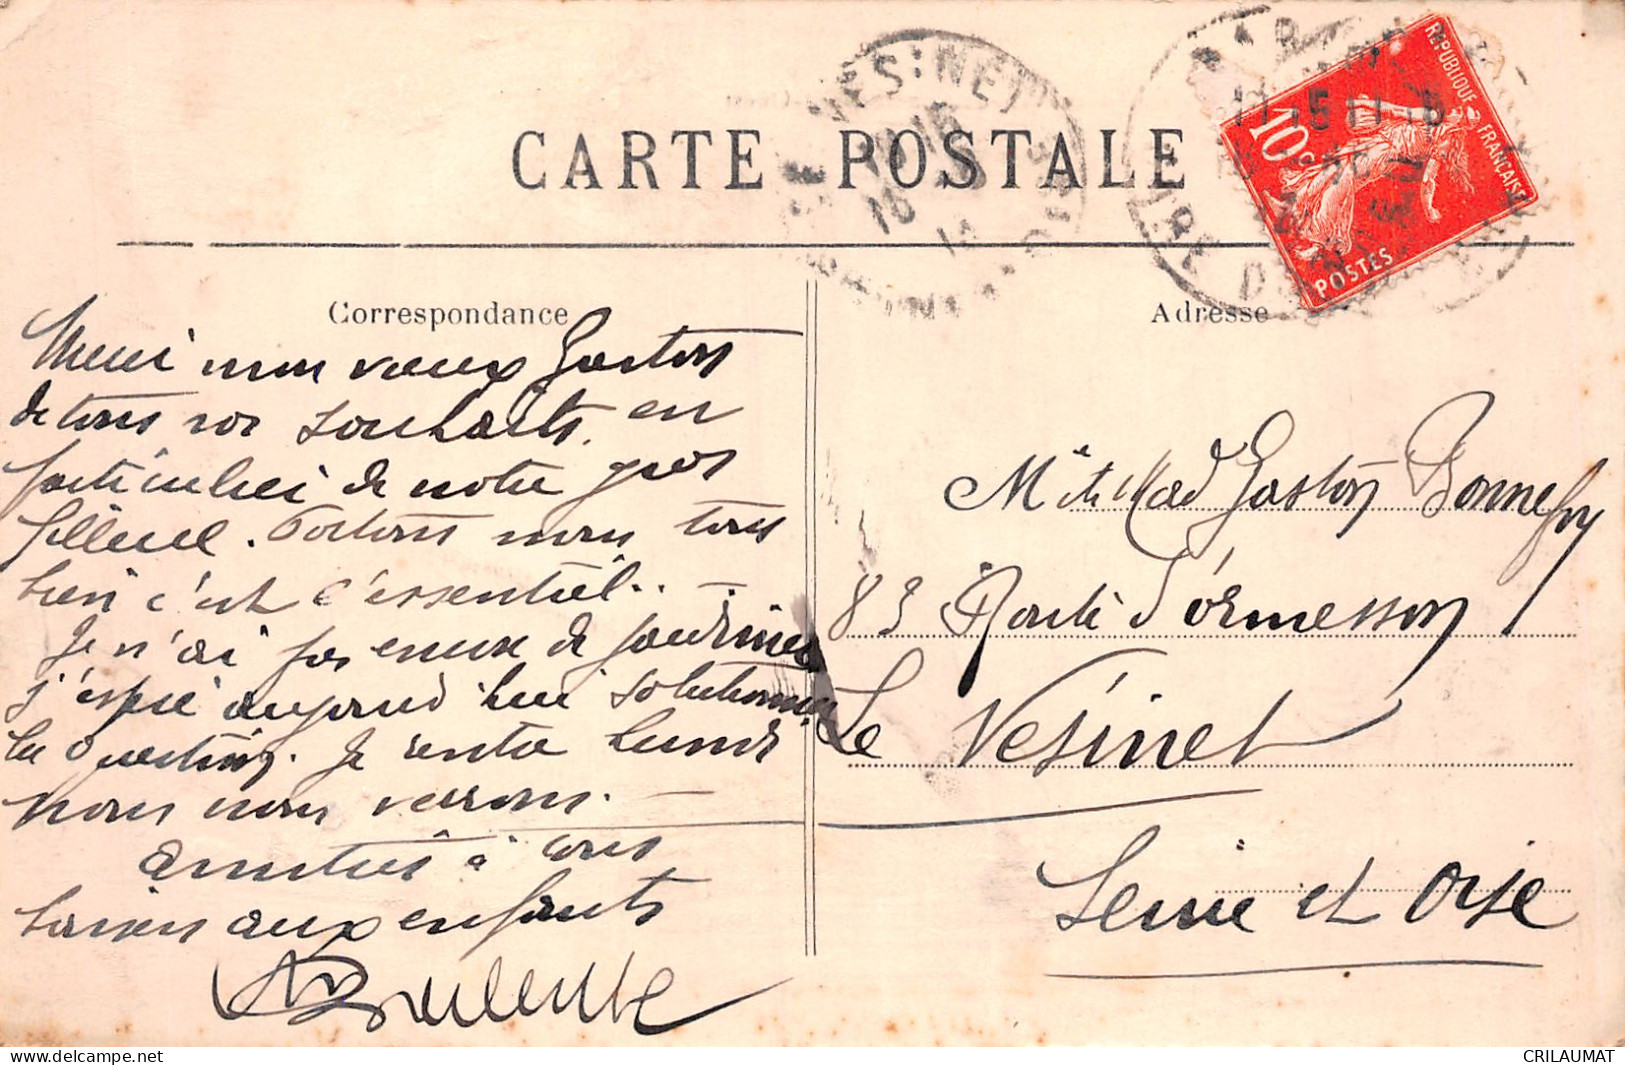 CARTE POSTALE
REPUBLIQUE FRANÇAISE
10c
POSTES
Correspondance
Adresse
Merci mon vieux Gaston
de tous vos souhaits, en
particulier de notre gros
filleul. Portons nous tous
bien c'est l'essentiel..
Je n'ai pas encore de
j'espère aujourd'hui solutionner
la question. Je rentre lundi
nous nous verrons.
amitiés à tous
baisers aux enfants
Mr et Mad Gaston Bonnefoy
83 Route d'ormesson
Le Vesinet
Seine et Oise
CRILAUMAT